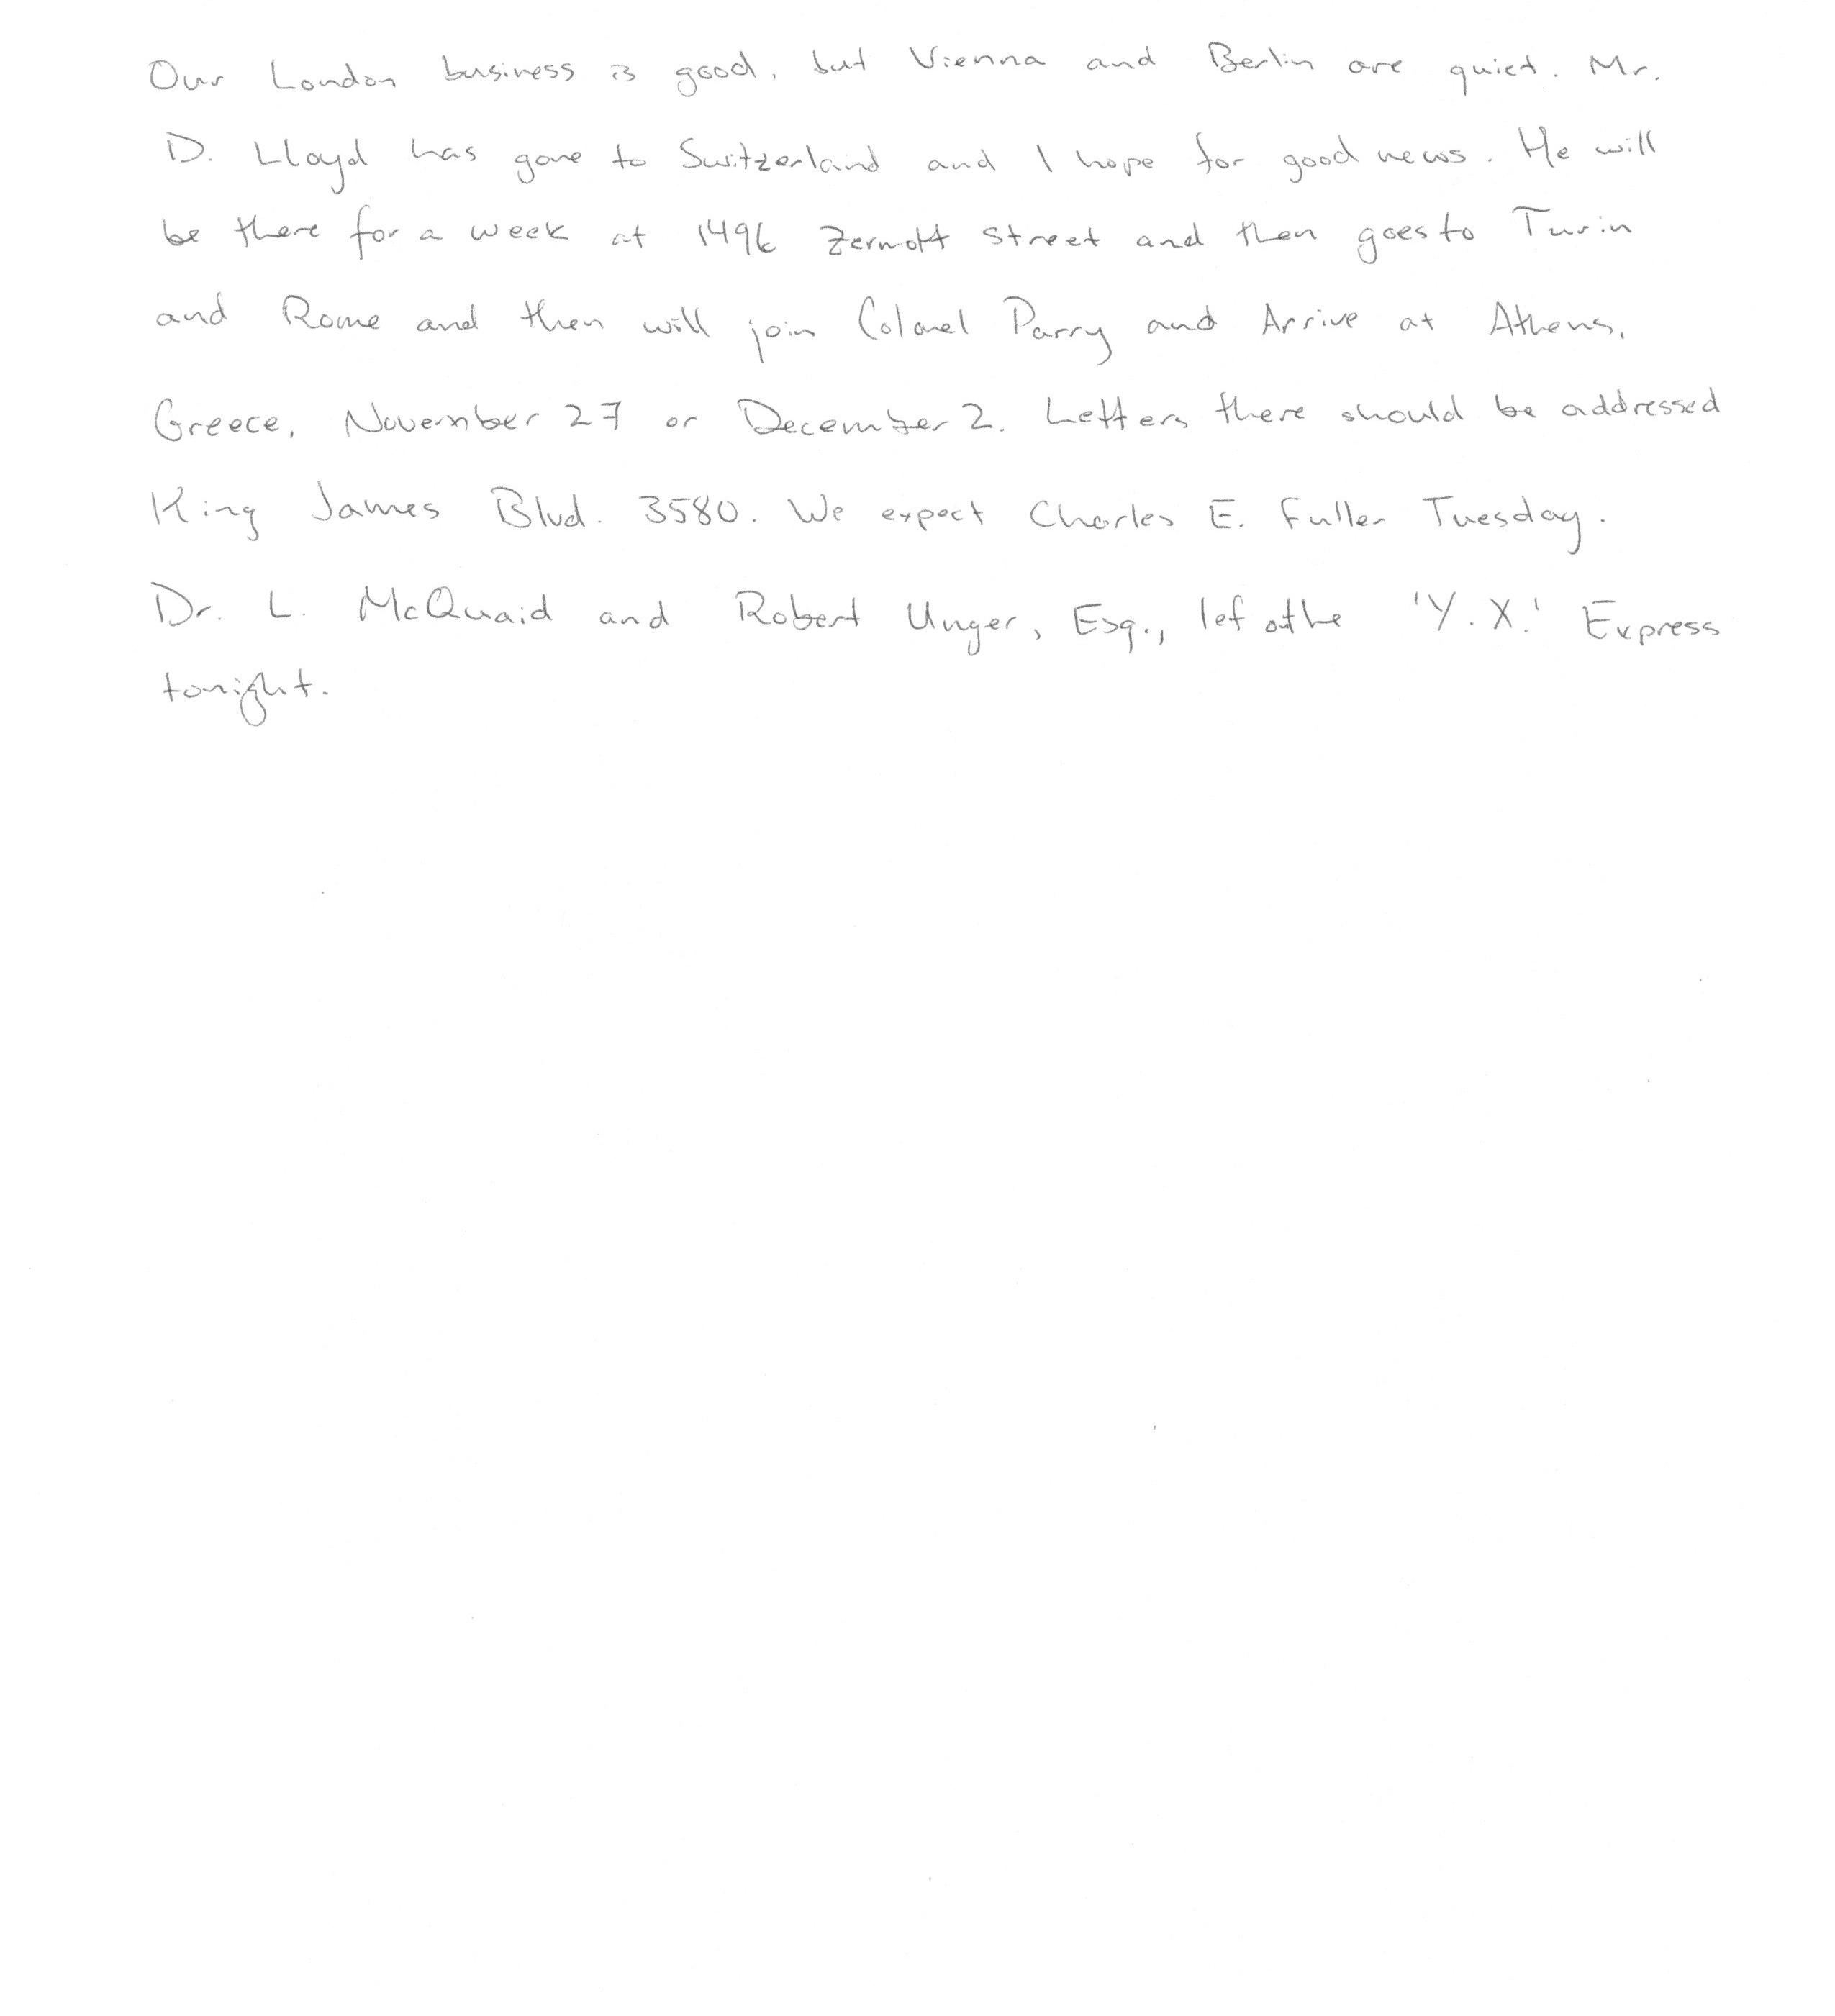 Our London business is good, but Vienna and Berlin are quiet. Mr.
D. Lloyd has gone to Switzerland and I hope for good news. He will
be there for a week at 1496 Zermott Street and then goes to Turin
and Rome and then will join Colonel Parry and Arrive at Athens,
Greece, November 27 or December 2. Letters there should be addressed
King James Blvd. 3580. We expect Charles E. Fuller Tuesday.
Dr. L. McQuaid and Robert Unger, Esq., lef othe 'Y.X.' Express
tonight.